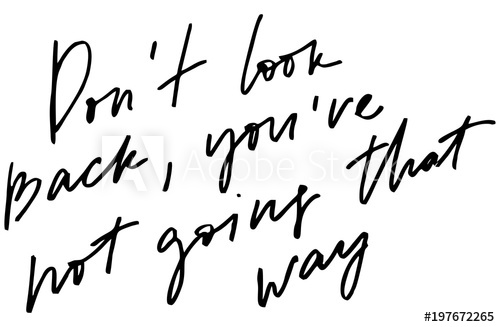 Don't look
Back, you've
not going that
way
Adobe Stock
#197672265